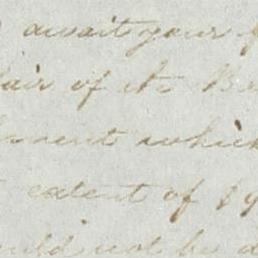 await your
air of its Br
ment which
extent of $9
ould not be d